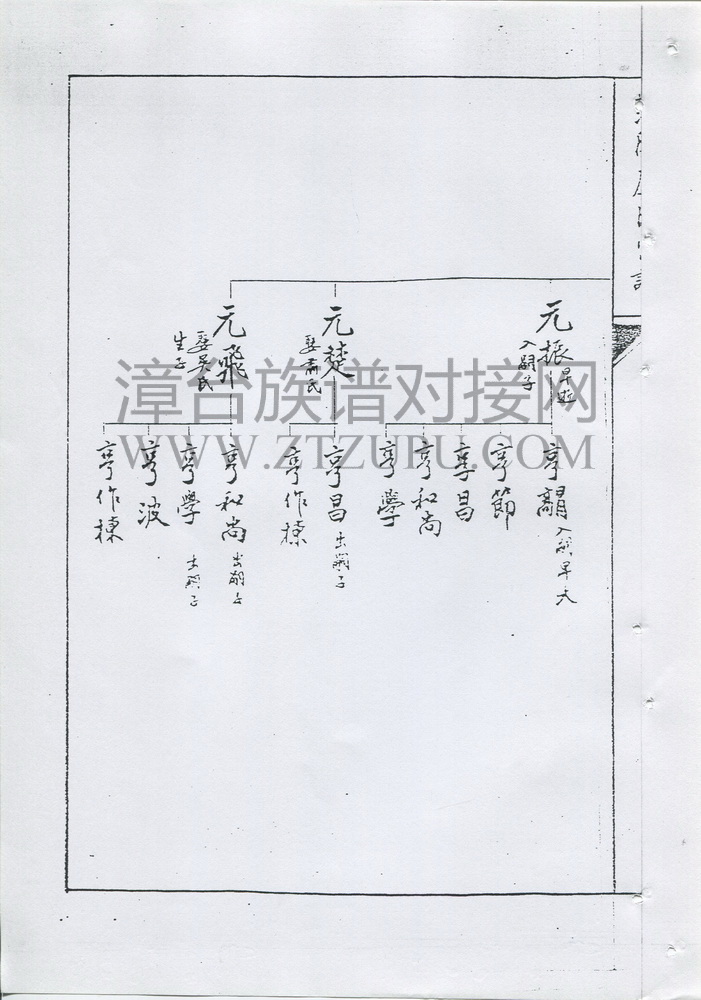 元振
早逝
入嗣子
元楚
娶蕭氏
元飛
娶吳氏
生子
亨節
亨昌
亨和尚
亨學
亨昌
出嗣子
亨作棟
亨和尚
出嗣子
亨學
出嗣子
亨波
亨作棟
漳台族谱对接网
WWW.ZTZUPU.COM